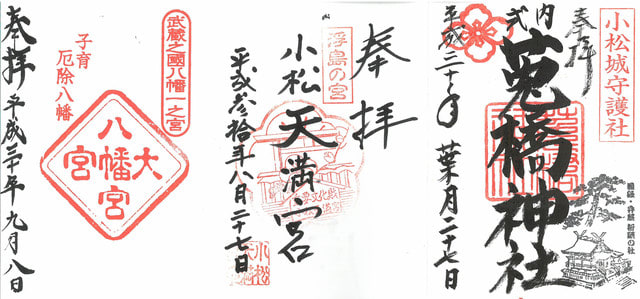 小松城守護社
奉拝
式内
菟橋神社
平成三十年
葉月二十七日
奉拝
浮島の宮
小松天満宮
平成参拾年八月二十七日
小松
武蔵之國八幡一之宮
子育
厄除八幡
大八幡宮
奉拝
平成三十年九月八日